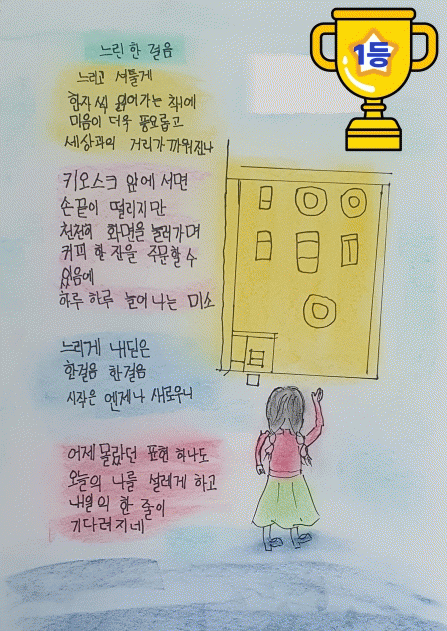 1등
느린 한 걸음
느리고 서툴게
한자씩 읽어가는 책에
마음이 더욱 풍요롭고
세상과의 거리가 까워진나
키오스크 앞에 서면
손끝이 떨리지만
천천히 화면을 눌러가며
커피 한 잔을 주문할 수
있음에
하루 하루 늘어나는 미소
느리게 내딛은
한걸음 한걸음
시작은 언제나 새로우니
어제 몰랐던 표현 하나도
오늘의 나를 설레게 하고
내일의 한 줄이
기다려지네